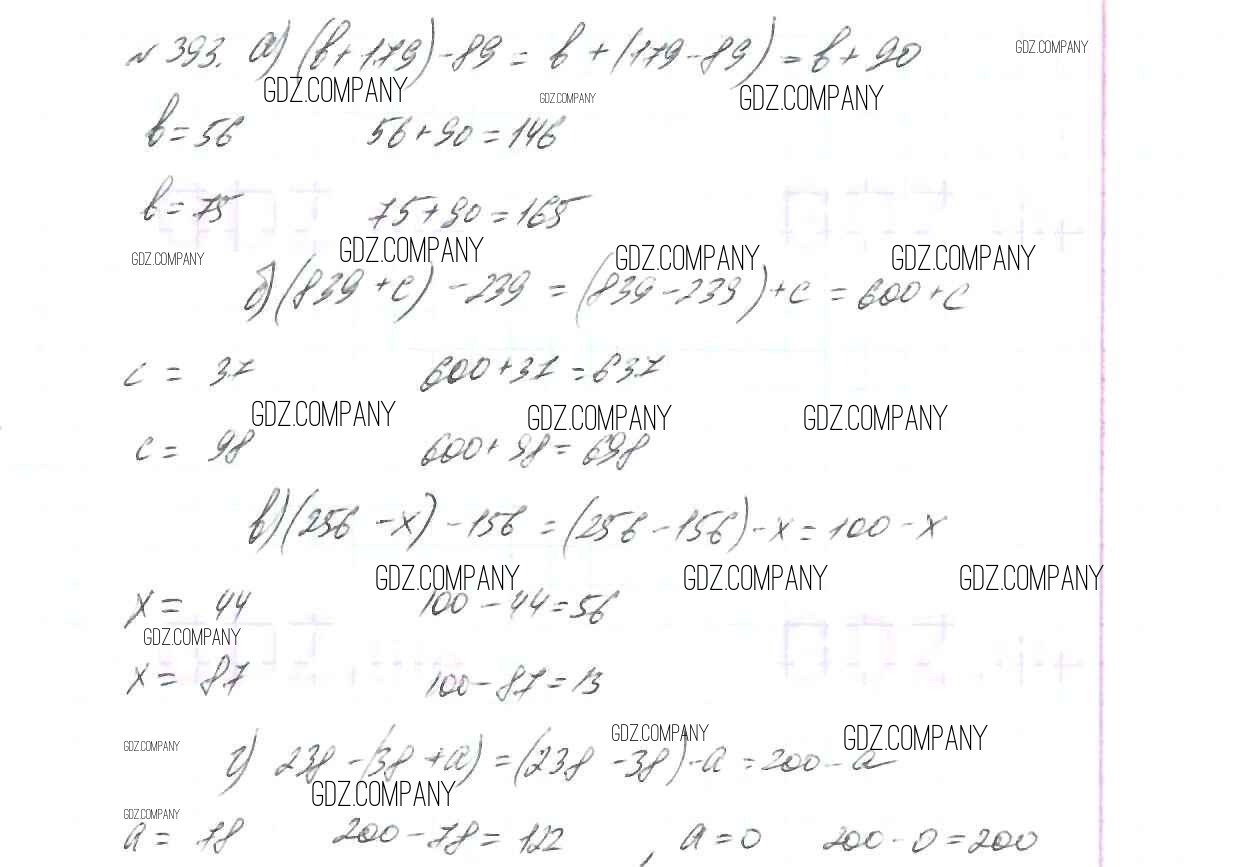 № 393. а) (в+179)-89 = в+(179-89) = в+90
GDZ.COMPANY
GDZ.COMPANY GDZ.COMPANY GDZ.COMPANY
в=56 56+90=146
в=75 75+90=165
GDZ.COMPANY GDZ.COMPANY GDZ.COMPANY GDZ.COMPANY
б) (839+с) -239 = (839-239)+с = 600+с
с = 37 600+37=637
GDZ.COMPANY GDZ.COMPANY GDZ.COMPANY
с = 98 600+98=698
в) (256-х) -156 = (256-156)-х = 100-х
GDZ.COMPANY GDZ.COMPANY GDZ.COMPANY
х = 44 100-44=56
GDZ.COMPANY
х = 87 100-87=13
GDZ.COMPANY GDZ.COMPANY GDZ.COMPANY
г) 238-(38+а) = (238-38)-а = 200-а
GDZ.COMPANY
GDZ.COMPANY
а = 78 200-78=122 , а=0 200-0=200